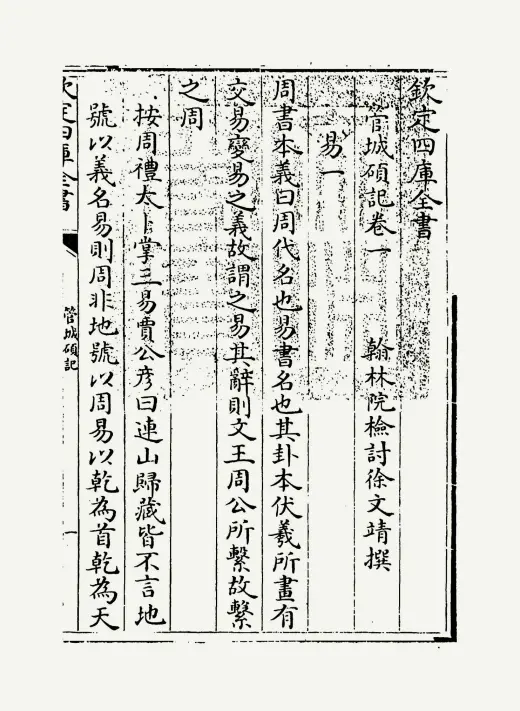 欽定四庫全書
管城碩記卷一 翰林院檢討徐文靖撰
易一
周書本義曰周代名也易書名也其卦本伏羲所畫有
交易變易之義故謂之易其辭則文王周公所繫故繫
之周
按周禮太卜掌三易賈公彥曰連山歸藏皆不言地
號以義名易則周非地號以周易以乾為首乾為天
欽定四庫全書
管城碩記
一